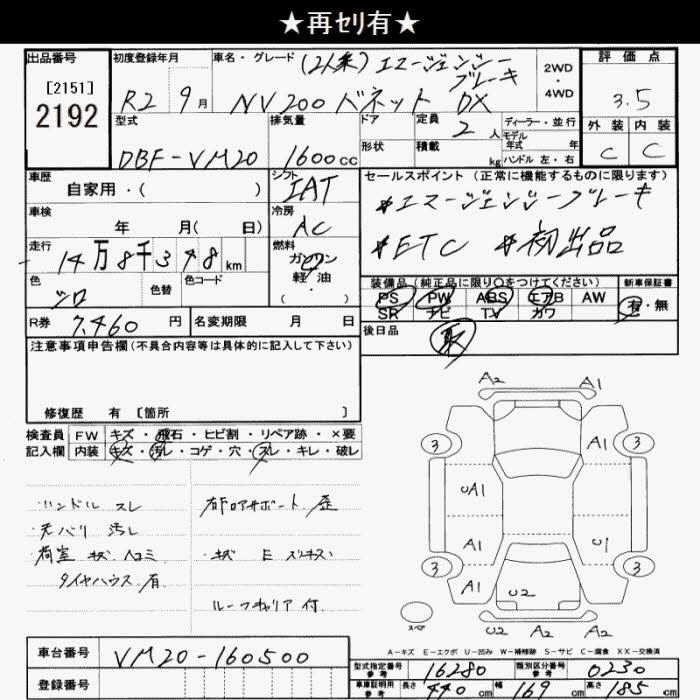 ★再ｾﾘ有★
出品番号 初度登録年月 車名・グレード (2人乗) エマージェンシー 2WD・4WD 評価点
[2151] R2 9月 ブレーキ 3.5
2192 NV200 バネット DX
型式 排気量 ドア 定員 2人 ディーラー・並行 外装 内装
モデル年式 年
DBF-VM20 1600cc 形状 積載 kg ハンドル 左・右 C C
車歴 シフト セールスポイント (正常に機能するものに限ります)
自家用・( ) IAT
*エマージェンシーブレーキ
車検 冷房
年 月( 日) AC
*ETC *初出品
走行 燃料
14万8千348km ガソリン
軽・油
・( )
装備品 (純正品に限り○をつけてください) 新車保証書
色 色替 色コード
シロ
PS PW ABS エアB AW 有・無
SR ナビ TV カワ
R券 7,460円 名変期限 月 日
後日品 取
注意事項申告欄(不具合内容等は具体的に記入して下さい)
修復歴 有 [箇所 ]
検査員 FW キズ・飛石・ヒビ割・リペア跡・×要
記入欄 内装 キズ・汚レ・コゲ・穴・スレ・キレ・破レ
・ハンドル スレ
・天バリ 汚レ
・荷室 キズ ヘコミ
タイヤハウス 有
右FロアサポートE 歪
・キズ E
ルーフキャリア付
A2 A1
3 A1 3
UA1
A1 U1
3 A1 3
U2
スペア U2 A2 A2
A-キズ E-エクボ U-凹み W-補修跡 S-サビ C-腐食 XX-交換済
車台番号 VM20-160500
登録番号
型式指定番号 参考 16280 類別区分番号 参考 0230
車庫証明用 参考 長さ 440cm 幅 169cm 高さ 185cm